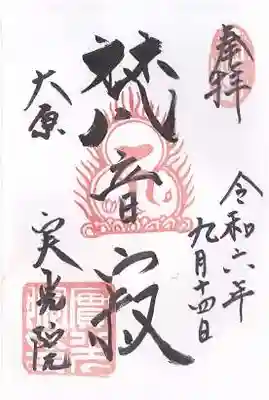 奉拝
令和六年
九月十四日
梵音寂
大原
実光院